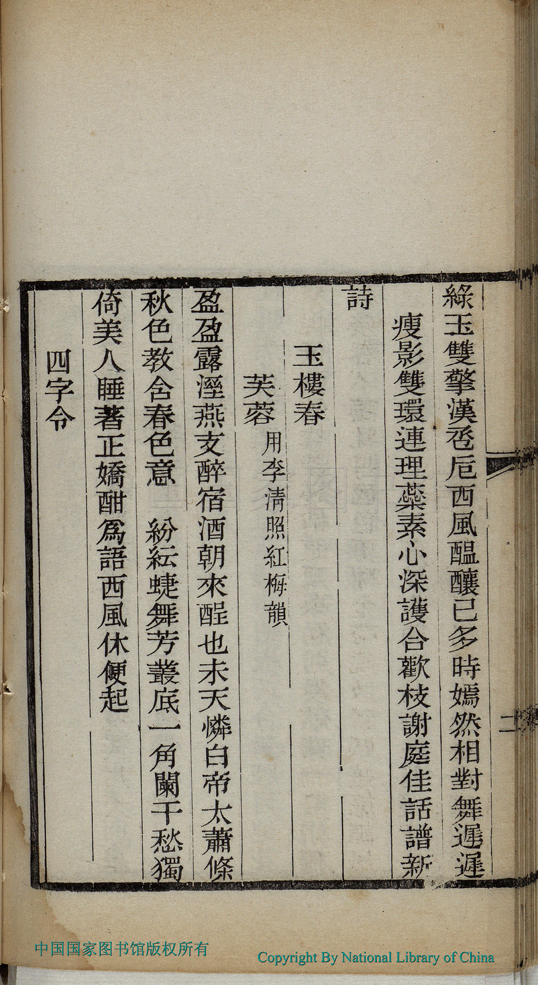 綠玉雙擎漢卺卮西風醞釀已多時嫣然相對舞遲遲
瘦影雙環連理蘂素心深護合歡枝謝庭佳話譜新
詩
玉樓春
芙蓉用李清照紅梅韻
盈盈露溼燕支醉宿酒朝來酲也未天憐白帝太蕭條
秋色教含春色意　紛紜蜨舞芳叢底一角闌干愁獨
倚美人睡著正嬌酣爲語西風休便起
四字令
二
中国国家图书馆版权所有
Copyright By National Library of China